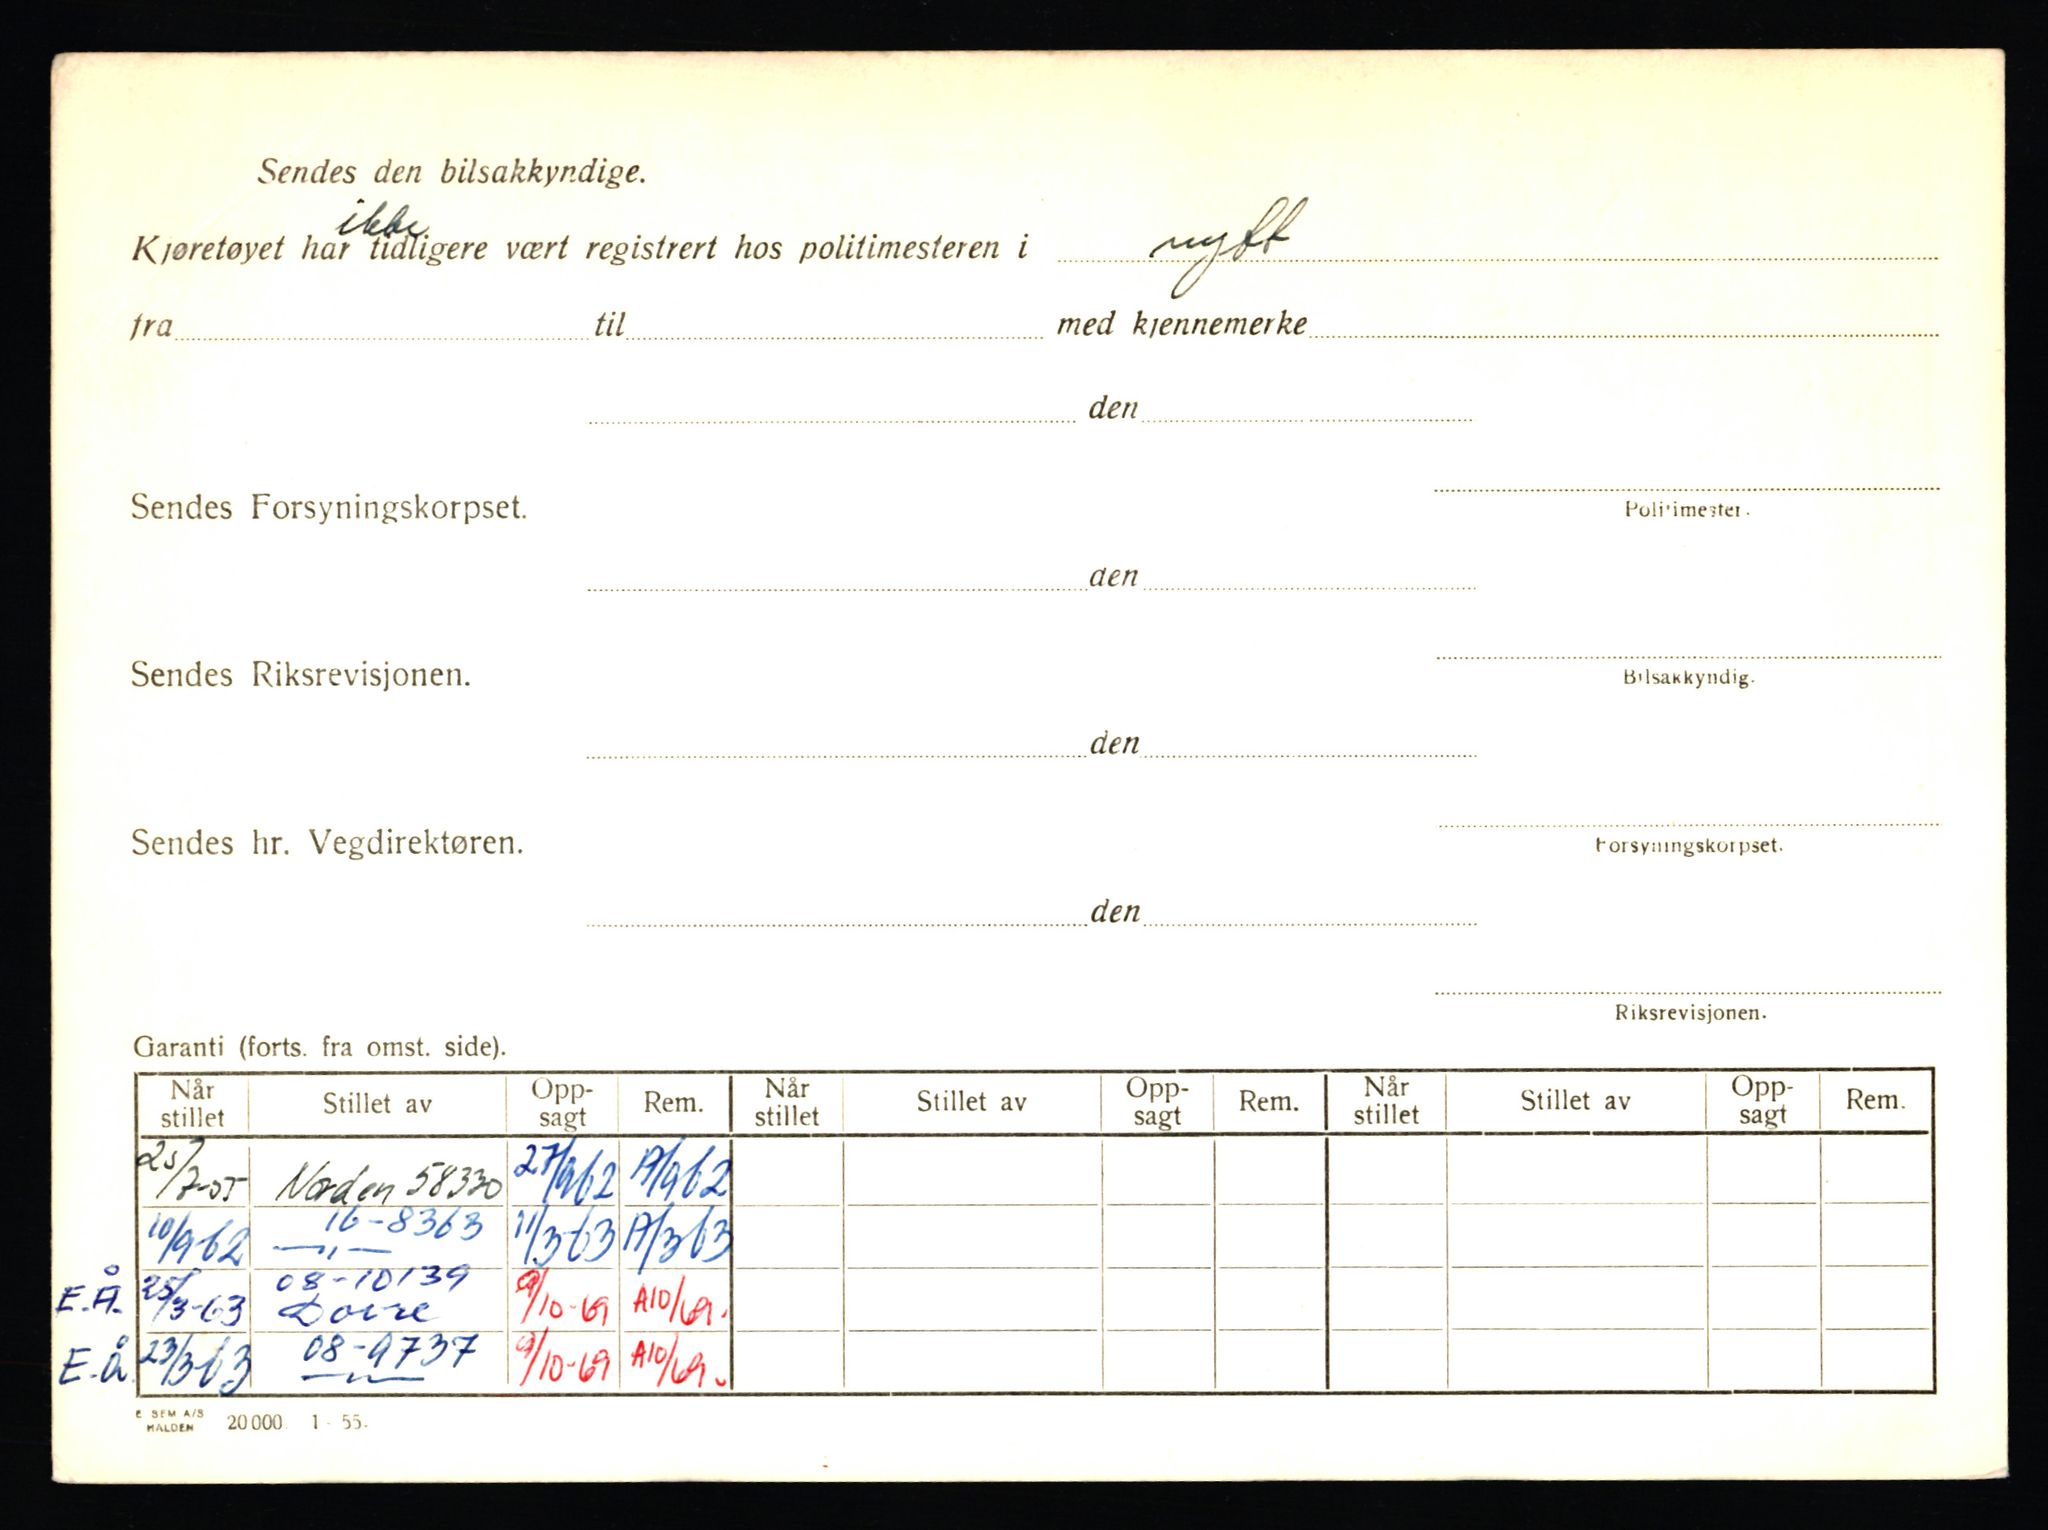 Sendes den bilsakkyndige.
ikke
Kjøretøyet har tidligere vært registrert hos politimesteren i nytt
fra til med kjennemerke
den
Sendes Forsyningskorpset.
Politimester.
den
Sendes Riksrevisjonen.
Bilsakkyndig.
den
Sendes hr. Vegdirektøren.
Forsyningskorpset.
den
Riksrevisjonen.
Garanti (forts. fra omst. side).
Når stillet Stillet av Opp-sagt Rem. Når stillet Stillet av Opp-sagt Rem. Når stillet Stillet av Opp-sagt Rem.
25/7-55 Norden 58330 27/9 62 A/9 62
10/9-62 16-8363 —„— 11/3-63 A/3-63
E.Å. 25/3-63 08-10139 Dovre 9/10-69 A10/69.
E.Å. 23/3-63 08-9737 —„— 9/10-69 A10/69.
E SEM A/S
HALDEN 20 000. 1 - 55.